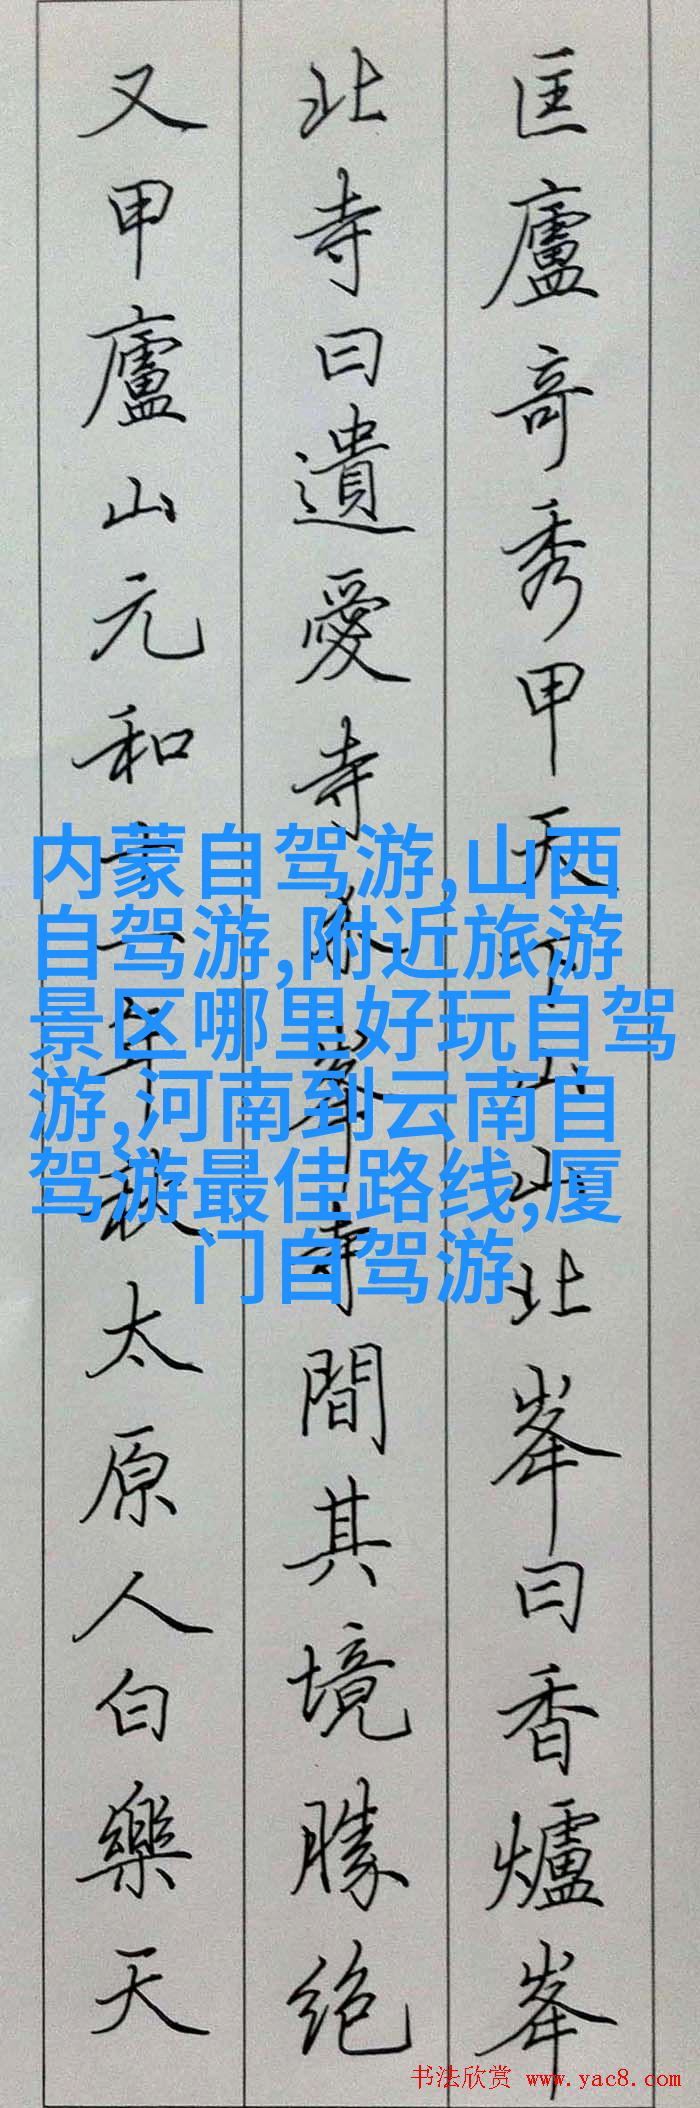 匡廬竒秀甲天下山山北峯曰香爐峯
北寺曰遺愛寺介峯寺間其境勝絶
又甲廬山元和十一年秋太原人白樂天
内蒙自驾游,山西
自驾游,附近旅游
景区哪里好玩自驾
游,河南到云南自
驾游最佳路线,厦
门自驾游
书法欣赏 www.yac8.com